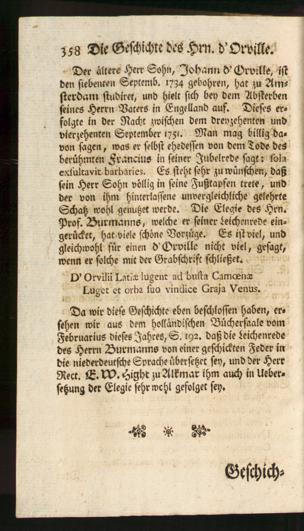 358 Die Geschichte des Hrn. d'Orville.
Der ältere Herr Sohn, Johann d'Orville, ist
den siebenten Septemb. 1734 gebohren, hat zu Am-
sterdam studiret, und hielt sich bey dem Absterben
seines Herrn Vaters in Engelland auf. Dieses er-
folgte in der Nacht zwischen dem dreyzehenten und
vierzehenten September 1751. Man mag billig da-
von sagen, was er selbst ehedessen von dem Tode des
berühmten Francius in seiner Jubelrede sagt: sola
exsultavit barbaries. Es steht sehr zu wünschen, daß
sein Herr Sohn völlig in seine Fußtapfen trete, und
der von ihm hinterlassene unvergleichliche gelehrte
Schatz wohl genutzt werde. Die Elegie des Hrn.
Prof. Burmanns, welche er seiner Leichenrede ein-
gerücket, hat viele schöne Vorzüge. Es ist viel, und
gleichwohl für einen d'Orville nicht viel, gesagt,
wenn er solche mit der Grabschrift schließet.
D'Orvilii Latiæ lugent ad busta Camœnæ
Luget et orba suo vindice Graja Venus.
Da wir diese Geschichte eben beschlossen haben, er-
sehen wir aus dem holländischen Büchersaale vom
Februarius dieses Jahres, S. 192. daß die Leichenrede
des Herrn Burmanns von einer geschickten Feder in
die niederdeutsche Sprache übersetzet sey, und der Herr
Rect. E. W. Hight zu Alkmar ihm auch in Ueber-
setzung der Elegie sehr wohl gefolget sey.
Geschich-